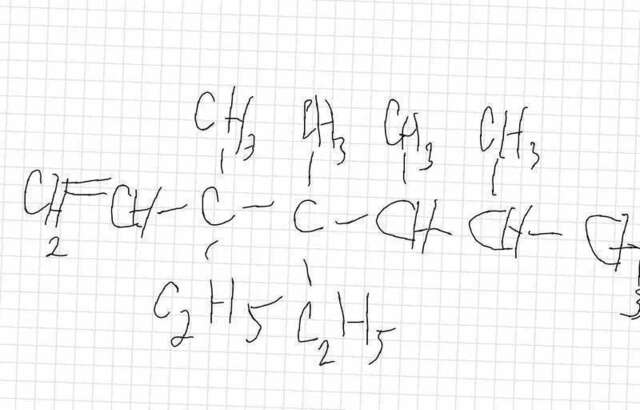 CH3 CH3 CH3 CH3
CH2=CH-C-C-CH-CH-CH3
C2H5 C2H5